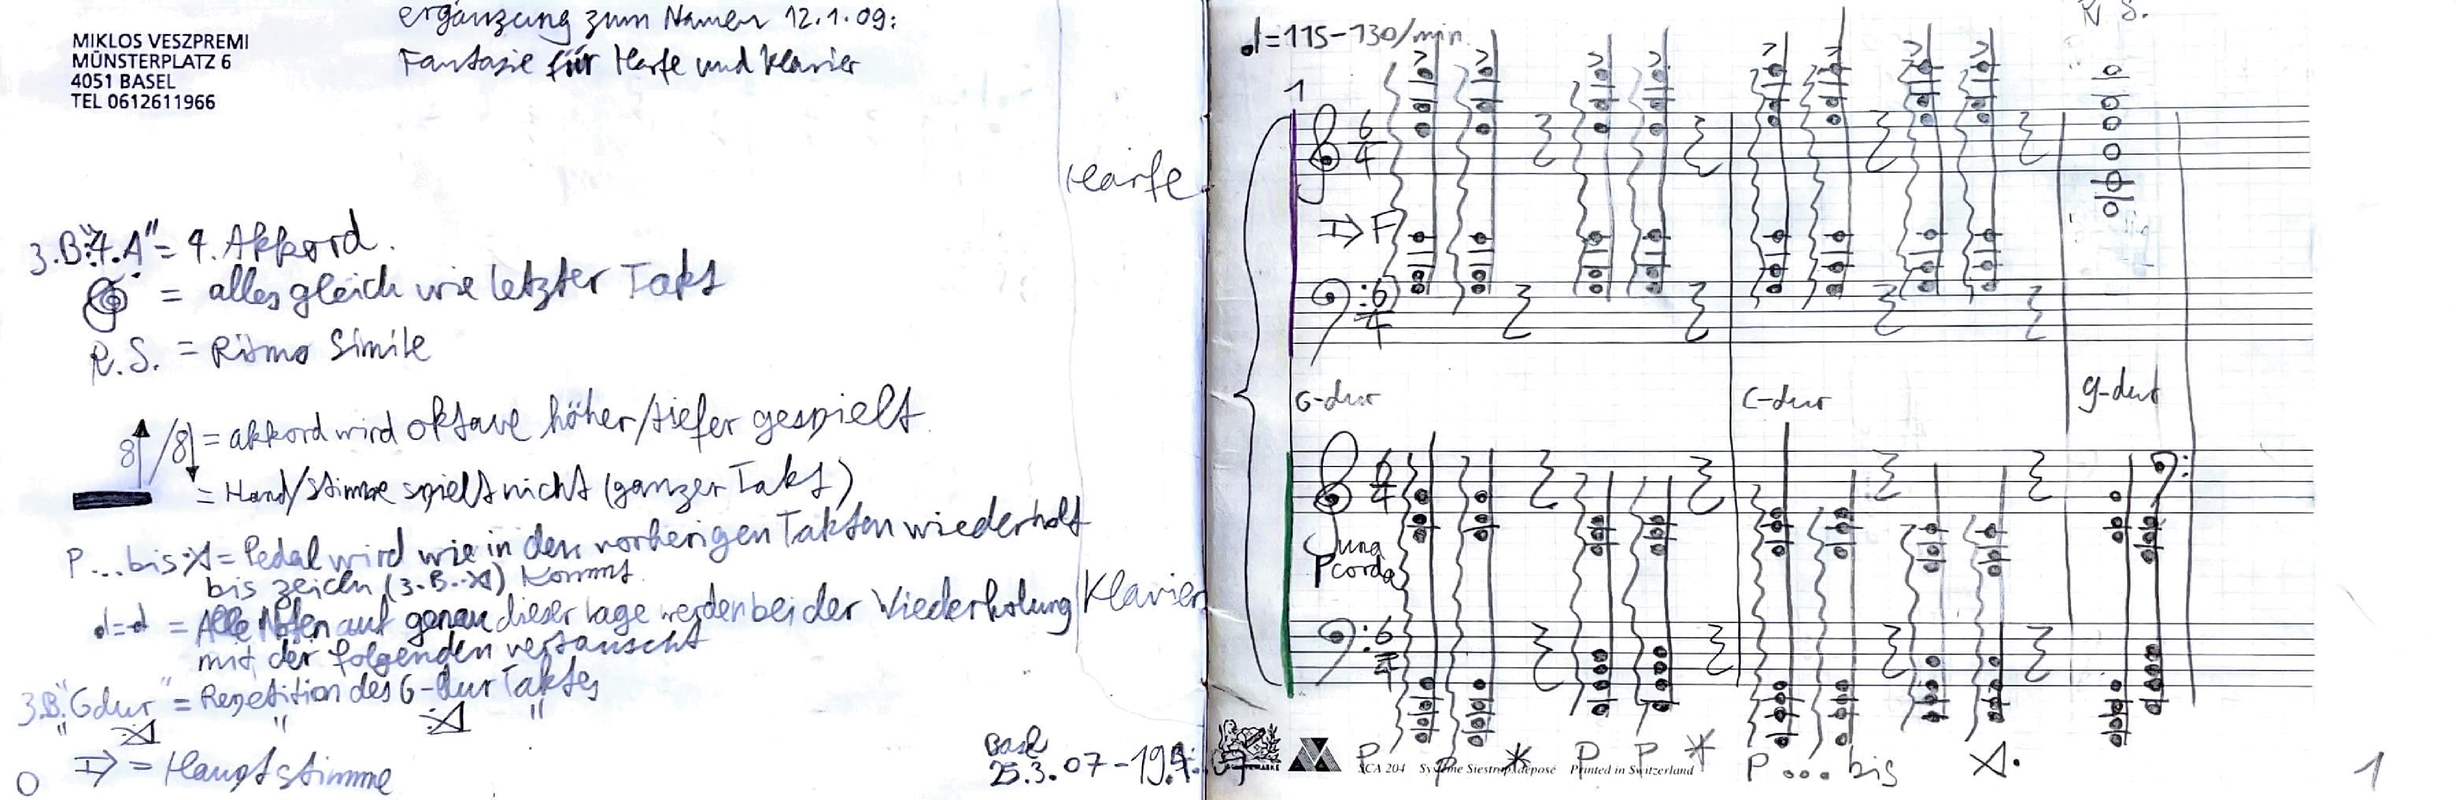 ergänzung zum Namen 12.1.09:
Fantasie für Harfe und Klavier
MIKLOS VESZPREMI
MÜNSTERPLATZ 6
4051 BASEL
TEL 0612611966
3.B."4.A" = 4. Akkord.
= alles gleich wie letzter Takt
R.S. = Ritmo Simile
8 / 8 = akkord wird oktave höher/tiefer gespielt
= Hand/stimme spielt nicht (ganzer Takt)
P...bis = Pedal wird wie in den vorherigen Takten wiederholt
bis zeichen (z.B. ) kommt
= Alle Noten auf genau dieser lage werden bei der Wiederholung
mit der folgenden vertauscht
z.B. "G dur" = Repetition des G-dur Taktes
= Hauptstimme
0
Basel
25.3.07-19.
Harfe
Klavier
=115-130/min.
R. S.
1
6 4
F
6 4
G-dur C-dur g-dur
6 4
una corda
P
6 4
P P * P P * P...bis
SCA 204 Système Siestrop déposé Printed in Switzerland
1